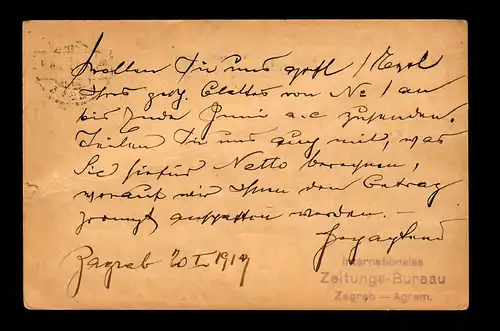 Wollen Sie uns gefl. 1 Expl
Ihres gesch. Blattes von No 1 an
bis Ende Juni a.c zusenden.
Teilen Sie uns auch mit, was
Sie hiefür Netto berechnen,
worauf wir Ihnen den Betrag
prompt werden. —
Zagreb 20 I 1914
Internationales
Zeitungs-Bureau
Zagreb — Agram.